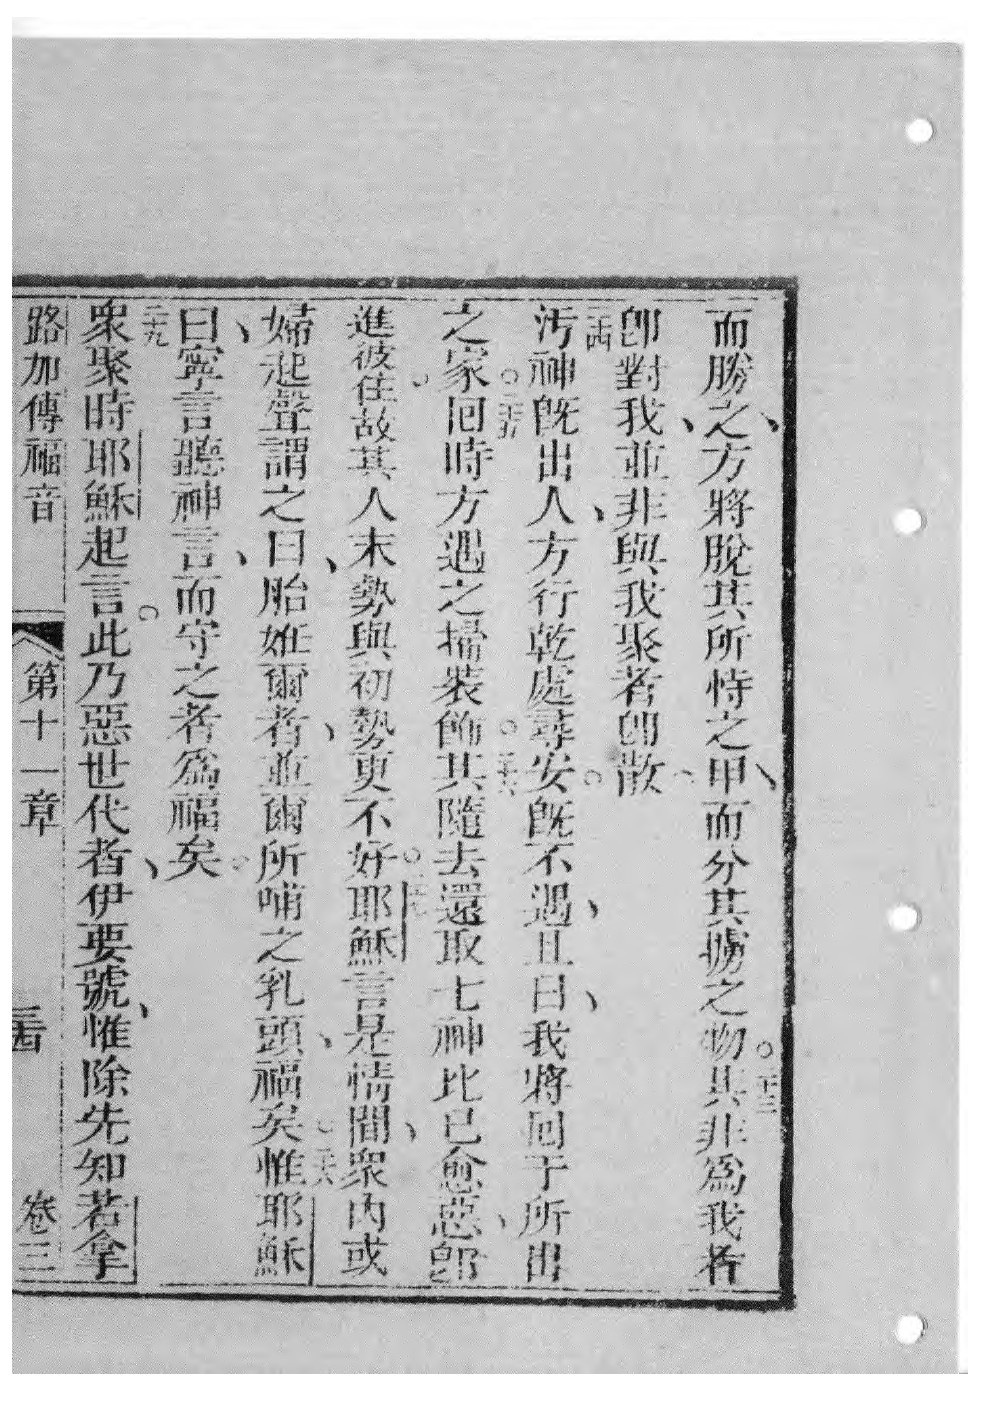 而勝之、方將脫其所恃之甲、而分其擄之物。二十三其非爲我者
卽對我、並非與我聚者卽散。
二十四汚神旣出人、方行乾處尋安。旣不遇、且曰、我將囘于所出
之家。二十五囘時方遇之掃裝飾。二十六其隨去還取七神比已愈惡、卽
進彼住。故其人末勢與初勢更不好。二十七耶穌言是情間、衆內或
婦起聲謂之曰、胎姙爾者、並爾所哺之乳頭、福矣。二十八惟耶穌
曰、寧言聽神言、而守之者爲福矣。
二十九衆聚時耶穌起言。此乃惡世代者、伊要號、惟除先知若拿
路加傳福音 第十一章 二十四 卷三